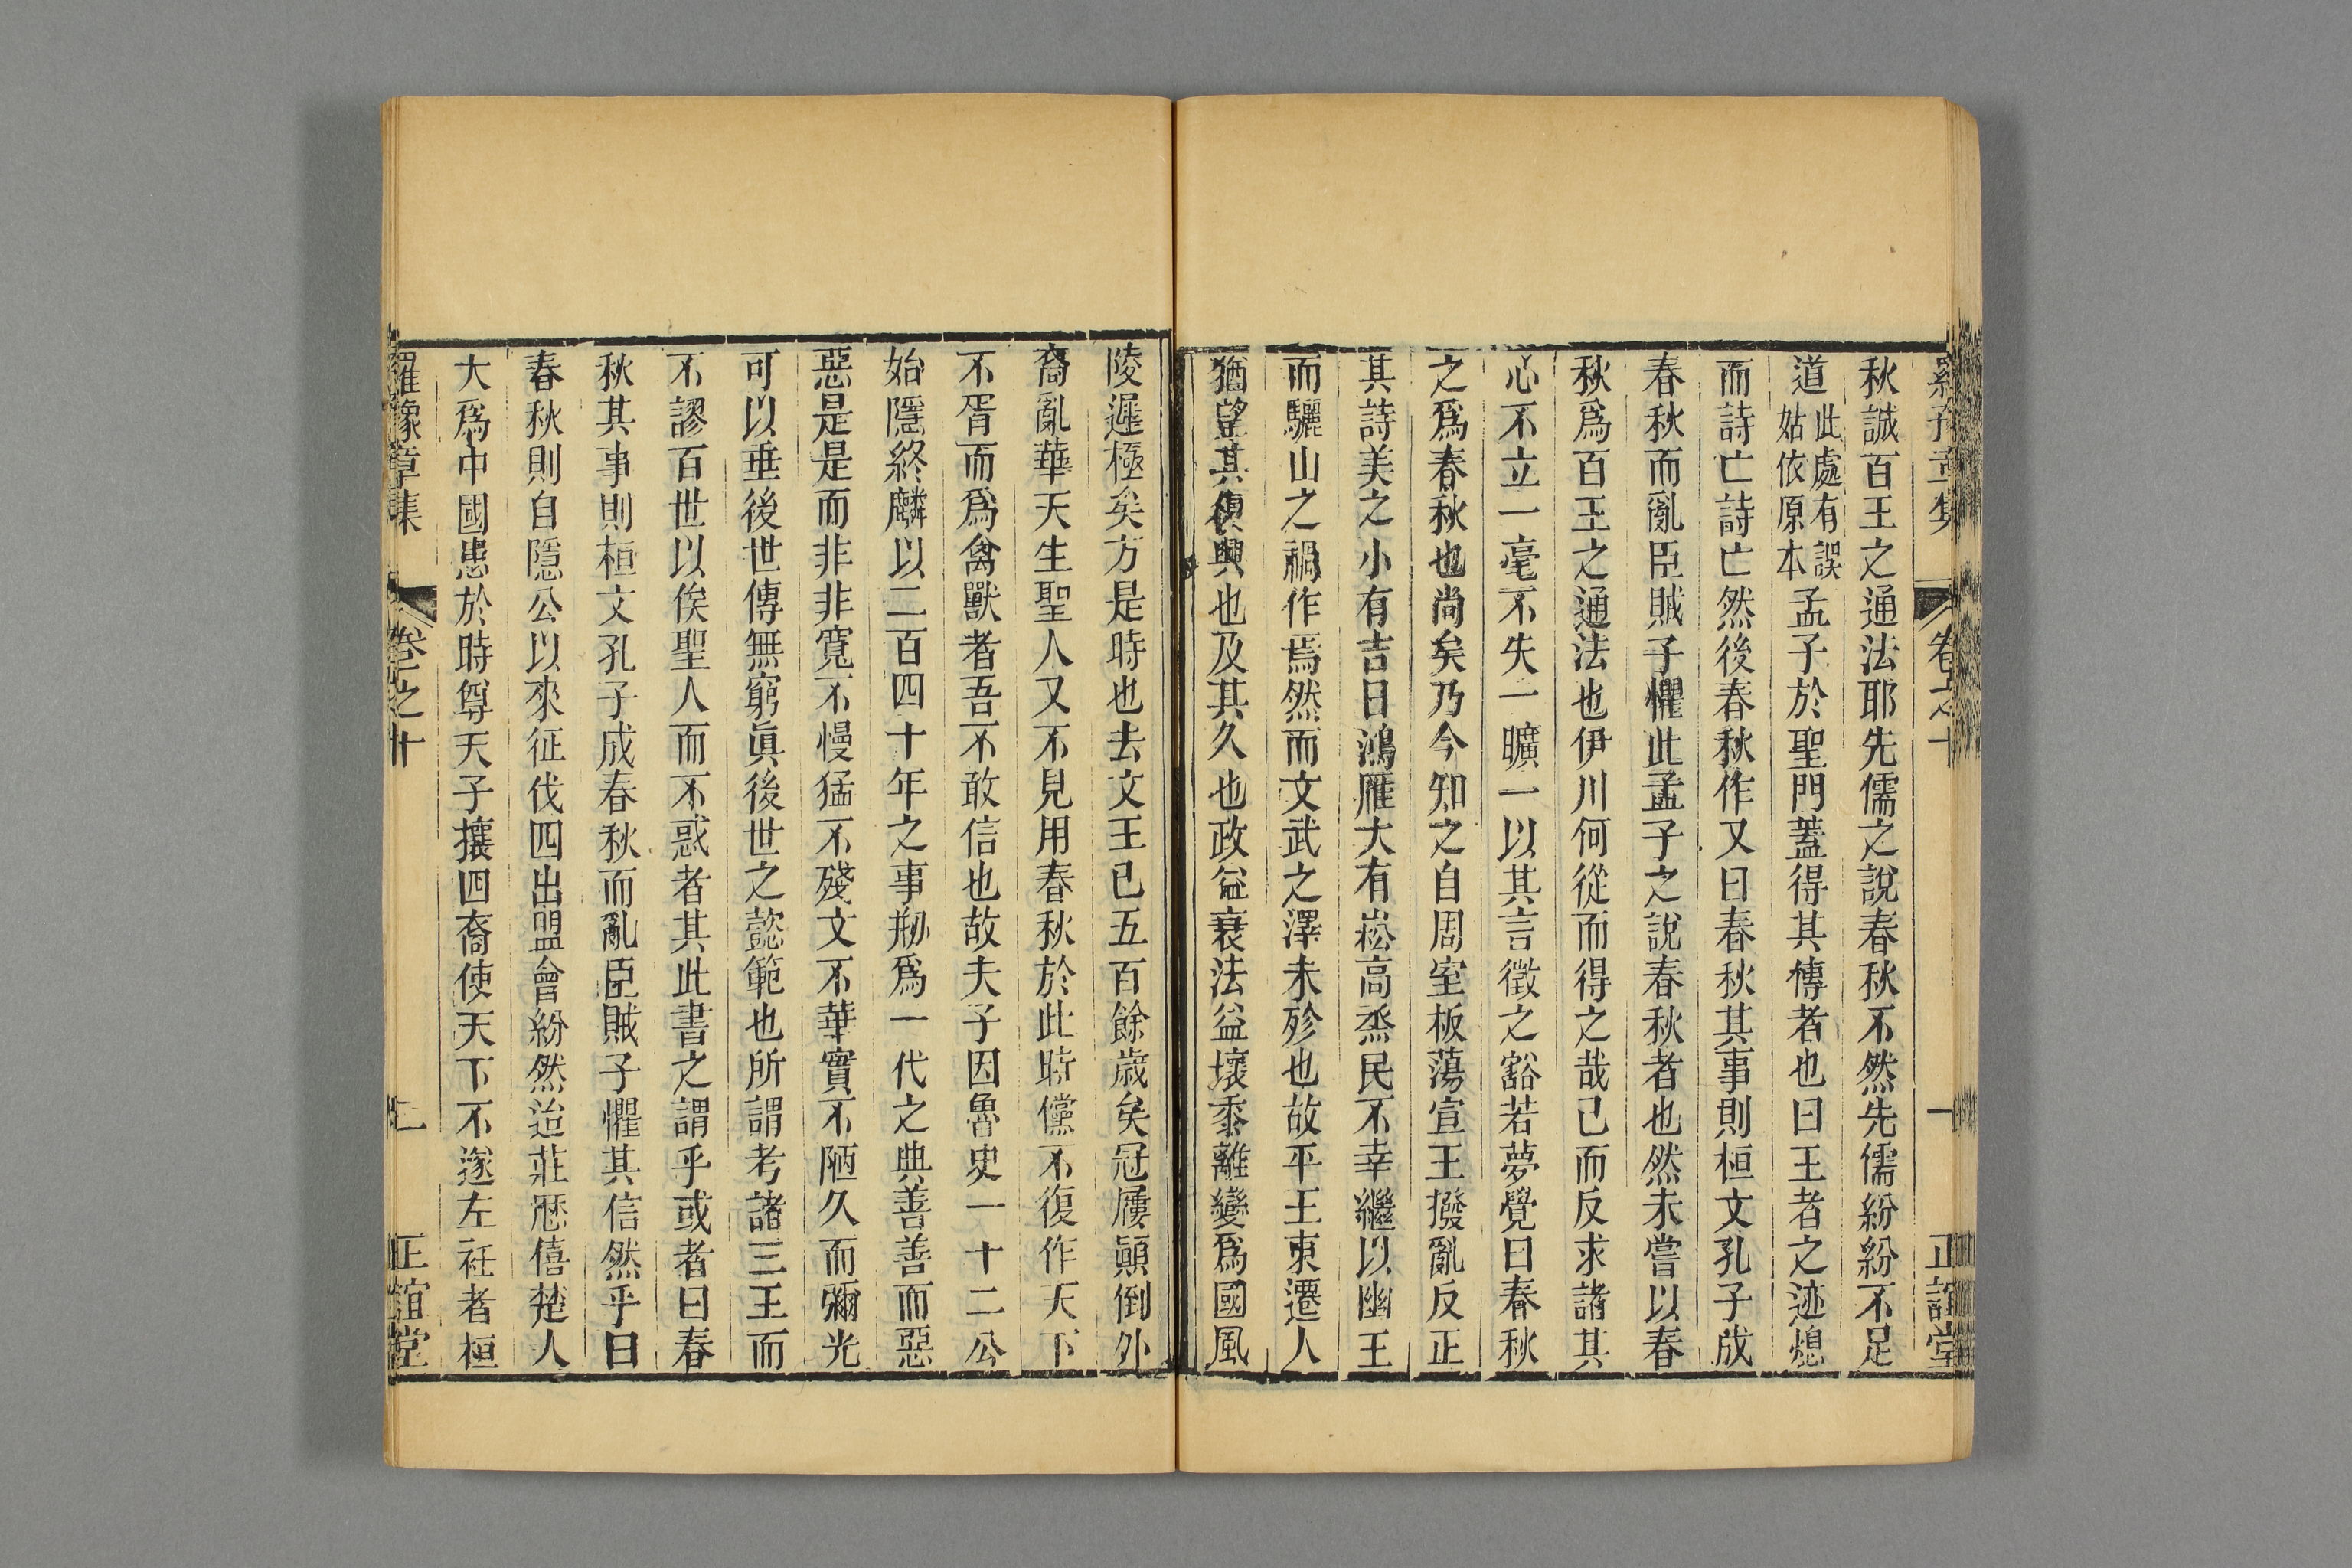 羅豫章集 卷之十 一 正誼堂
秋誠百王之通法耶先儒之說春秋不然先儒紛紛不足
道此處有誤姑依原本孟子於聖門蓋得其傳者也曰王者之迹熄
而詩亡詩亡然後春秋作又曰春秋其事則桓文孔子成
春秋而亂臣賊子懼此孟子之說春秋者也然未嘗以春
秋爲百王之通法也伊川何從而得之哉已而反求諸其
心不立一毫不失一曠一以其言徵之豁若夢覺曰春秋
之爲春秋也尚矣乃今知之自周室板蕩宣王撥亂反正
其詩美之小有吉日鴻雁大有崧高烝民不幸繼以幽王
而驪山之禍作焉然而文武之澤未殄也故平王東遷人
猶望其復興也及其久也政益衰法益壞黍離變爲國風
陵遲極矣方是時也去文王已五百餘歲矣冠屨顚倒外
裔亂華天生聖人又不見用春秋於此時儻不復作天下
不胥而爲禽獸者吾不敢信也故夫子因魯史一十二公
始隱終麟以二百四十年之事刱爲一代之典善善而惡
惡是是而非非寬不慢猛不殘文不華實不陋久而彌光
可以垂後世傳無窮眞後世之懿範也所謂考諸三王而
不謬百世以俟聖人而不惑者其此書之謂乎或者曰春
秋其事則桓文孔子成春秋而亂臣賊子懼其信然乎曰
春秋則自隱公以來征伐四出盟會紛然迨莊歷僖楚人
大爲中國患於時尊天子攘四裔使天下不遂左衽者桓
羅豫章集 卷之十 二 正誼堂